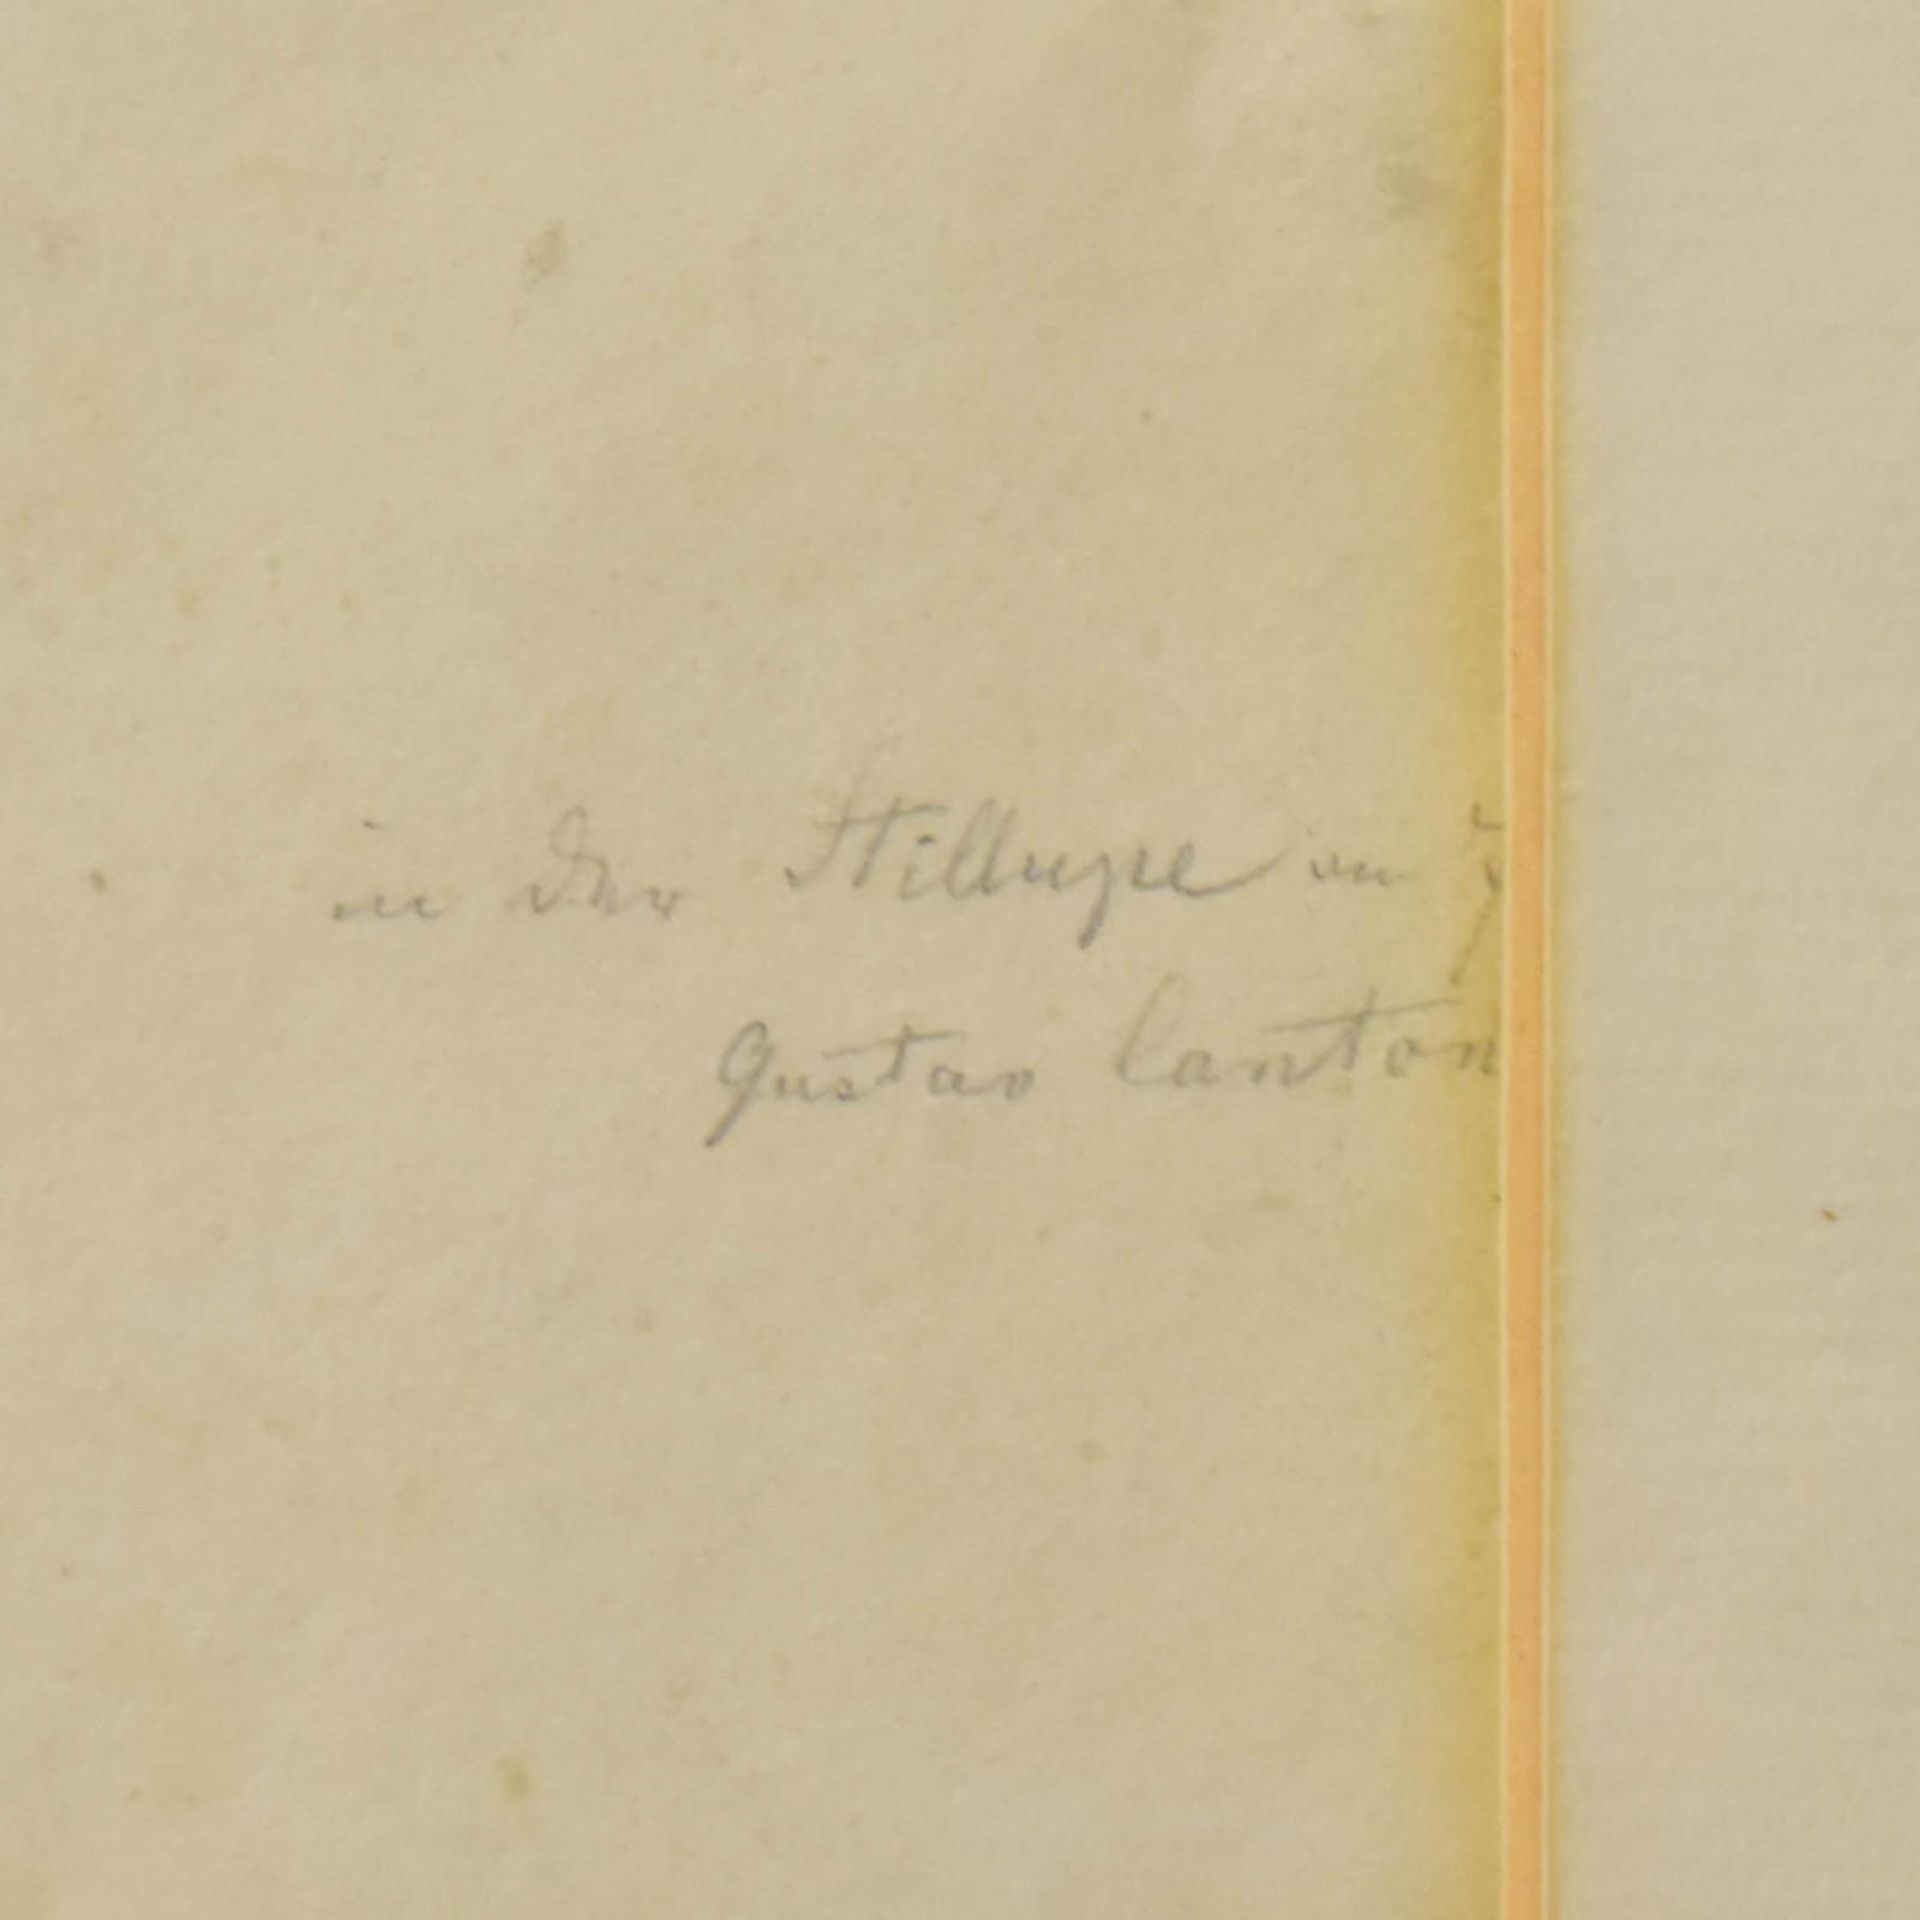 in der Stilluppe im Z
Gustav Canton